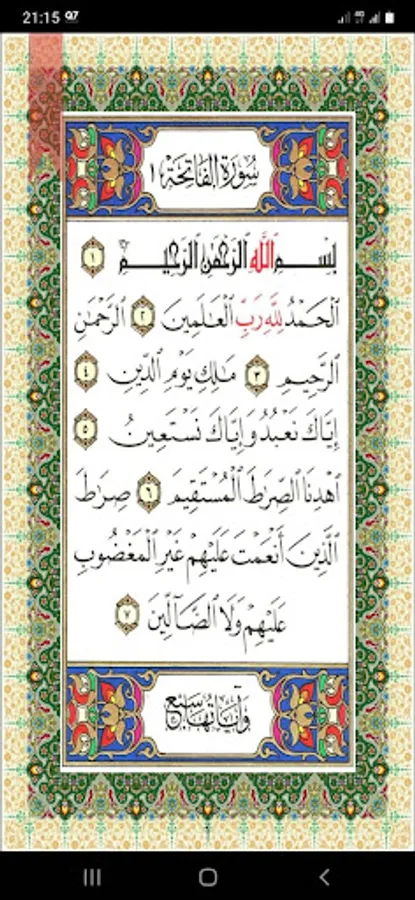 21:15
سُورَةُ الفَاتِحَةِ ١
بِسْمِ اللَّهِ الرَّحْمَٰنِ الرَّحِيمِ ١
الْحَمْدُ لِلَّهِ رَبِّ الْعَالَمِينَ ٢ الرَّحْمَٰنِ
الرَّحِيمِ ٣ مَالِكِ يَوْمِ الدِّينِ ٤
إِيَّاكَ نَعْبُدُ وَإِيَّاكَ نَسْتَعِينُ ٥
اهْدِنَا الصِّرَاطَ الْمُسْتَقِيمَ ٦ صِرَاطَ
الَّذِينَ أَنْعَمْتَ عَلَيْهِمْ غَيْرِ الْمَغْضُوبِ
عَلَيْهِمْ وَلَا الضَّالِّينَ ٧
وَآيَاتُهَا سَبْعٌ